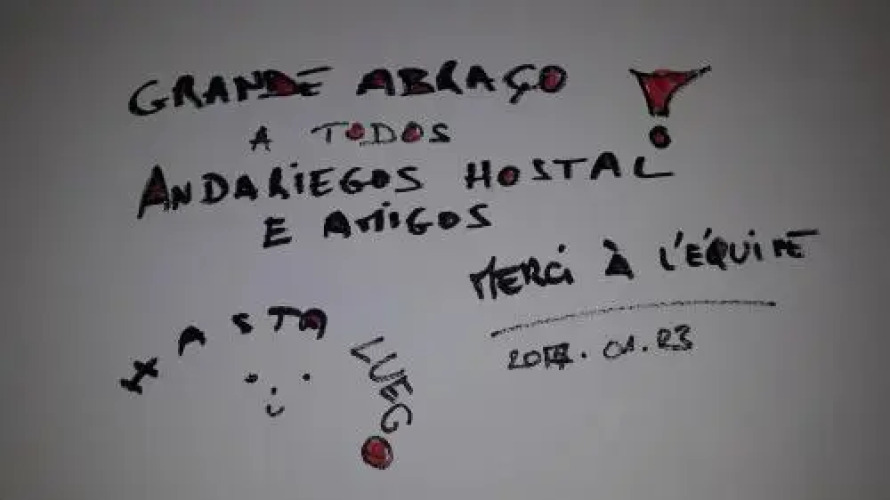 GRANDE ABRAÇO !
A TODOS
ANDARIEGOS HOSTAL
E AMIGOS
MERCI À L'ÉQUIPE
01.23
HASTA LUEGO